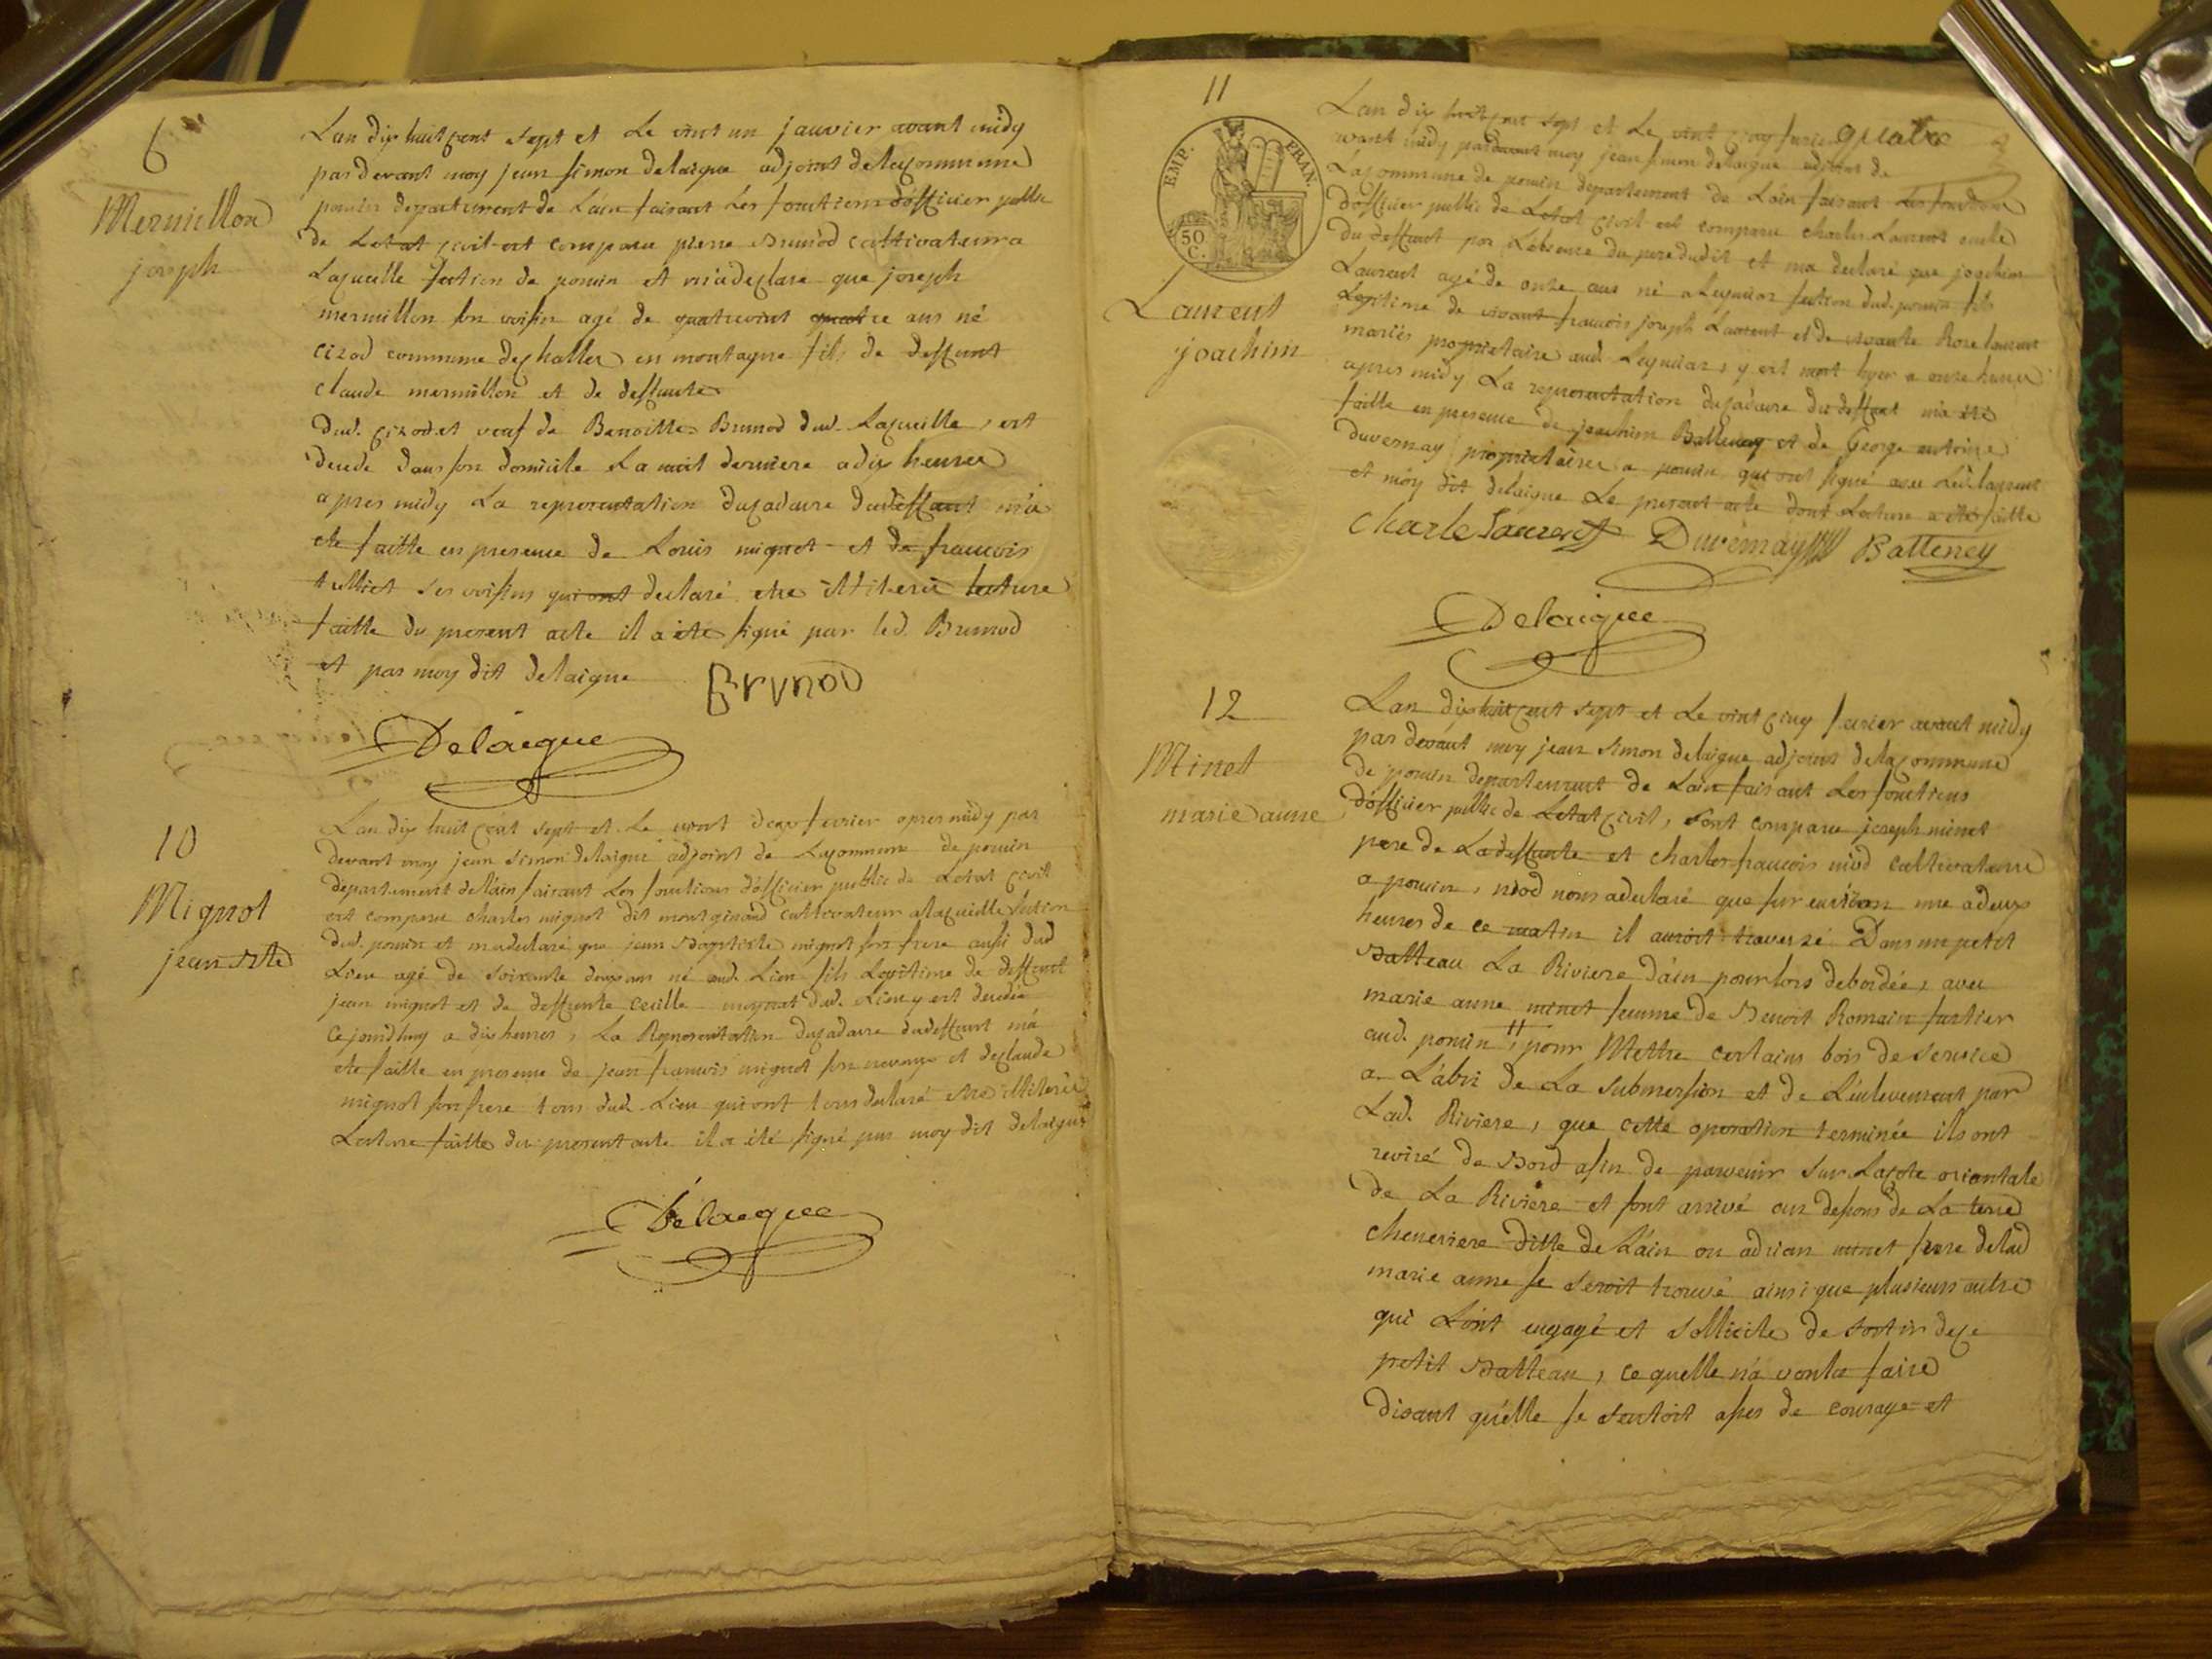 6
Mermillon
joseph
Lan dix huit cent sept et Le vint un janvier avant midy
pardevant moy jean simon delaigue adjoint de la commune
poncin departement de Lain faisant Les fonctions d'officier public
de Letat civil est comparu pierre Brunod cultivateur a
Lacueille section de poncin et m'a declare que joseph
mermillon son voisin agé de quatrevint quatre ans né
cizod commune de challes en montagne fils de deffunt
claude mermillon et de deffunte
dud. cizod et veuf de Benoitte Brunod dud. Lacueille, est
decede dans son domicile La nuit derniere a dix heures
apres midy La representation du cadavre dud deffunt m'a
ete faitte en presence de Louis mignot et de francois
ses voisins qui ont declaré etre illiteré lecture
faitte du present acte il a été signé par led. Brunod
et par moy dit delaigue
Brunod
Delaigue
10
Mignot
jean Bte
Lan dix huit cent sept et Le vint deux fevrier apres midy par
devant moy jean simon delaigue adjoint de Lacommune de poncin
departement de Lain faisant Les fonctions d'officier public de Letat civil
est comparu charles mignot dit montginod cultivateur a lacueille section
dud. poncin et ma declaré que jean Baptiste mignot son frere aussi dud
Lieu agé de soixante deux ans né aud. Lieu fils Legitime de deffunt
jean mignot et de deffunte Cecille mignot dud. Lieu y est decedé
cejourdhuy a dix heures, La Representation du cadavre dud deffunt m'a
ete faitte en presence de jean francois mignot son neveux et de claude
mignot son frere tous dud. Lieu qui ont tous declaré etre illiteré
Lecture faitte du present acte il a été signé par moy dit delaigue
Delaigue
11
EMP. FRAN.
50
C.
Laurent
joachim
Lan dix huit cent sept et Le vint quatre
avant midy pardevant moy jean simon delaigue adjoint de
Lacommune de poncin departement de Lain faisant Les fonctions
d'officier public de Letat civil est comparu charles Laurent oncle
du deffunt par Labsence du pere dudit et ma declaré que joachim
Laurent agé de onze ans né a Leymiar section dud. poncin fils
Legitime de vivant francois joseph Laurent et de vivante Rose laurent
mariés proprietaire aud. Leymiar, y est mort hyer a onze heures
apres midy La representation du cadavre du deffunt m'a été
faitte en presence de joachim Batteney et de George antoine
duvernay proprietaires a poncin qui ont signé avec Led. laurent
et moy dit delaigue Le present acte dont Lecture a été faitte
Charle Laurent Duvernay Batteney
Delaigue
12
Minet
marie anne
Lan dix huit cent sept et Le vint cinq fevrier avant midy
par devant moy jean simon delaigue adjoint de la commune
de poncin departement de Lain faisant Les fonctions
d'officier public de Letat civil, sont comparu joseph minet
pere de La deffunte et charles francois niod cultivateurs
a poncin, niod nous a declaré que sur environ une a deux
heures de ce matin il auroit traversé Dans un petit
Batteau La Riviere d'ain pour lors debordée, avec
marie anne minet femme de Benoit Romain
aud. poncin // pour Mettre certains bois de service
a L'abri de La submersion et de L'enlevement par
Lad. Riviere, que cette operation terminée ils ont
reviré de Bord afin de parvenir sur Lacote orientale
de La Riviere et sont arrivé au dessous de La terre
cheneviere ditte de L'ain ou adrian minet frere de lad
marie anne se seroit trouvé ainsi que plusieurs autre
qui L'ont engagé et sollicite de sortir de ce
petit Batteau, ce quelle n'a voula faire
disant qu'elle se sentoit asses de courage et